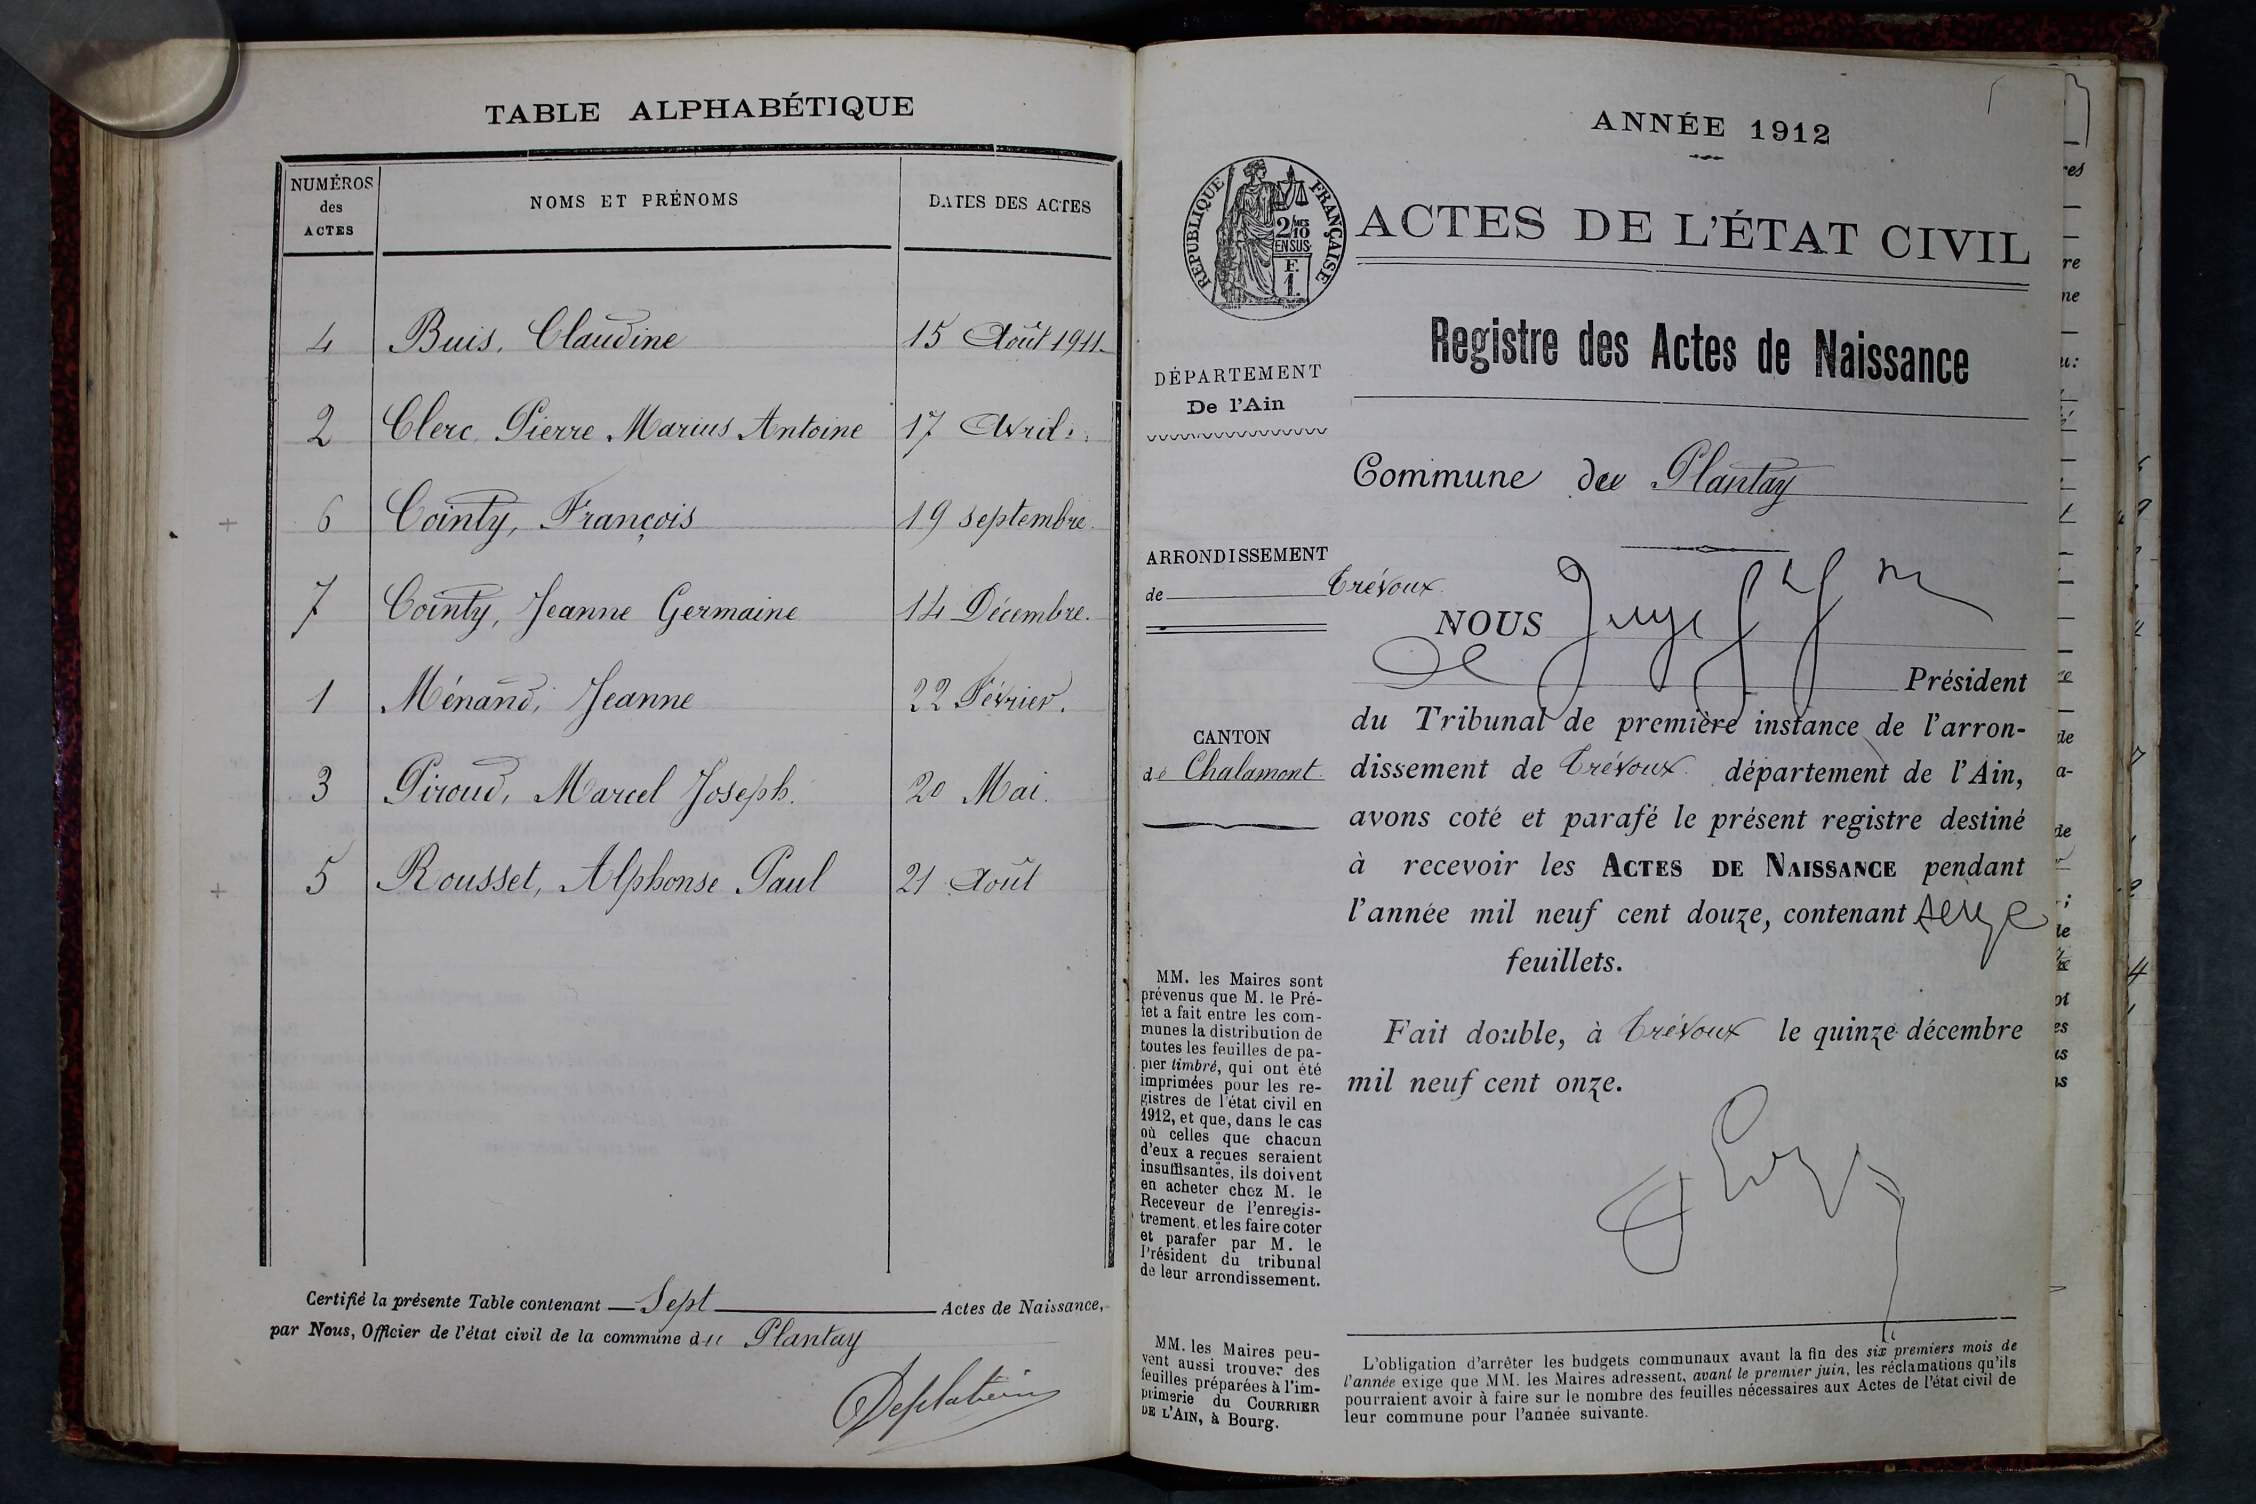 TABLE ALPHABÉTIQUE
NUMÉROS des ACTES
NOMS ET PRÉNOMS
DATES DES ACTES
4 Buis, Claudine 15 Août 1911.
2 Clerc Pierre Marius Antoine 17 Avril.
6 Cointy, François 19 septembre.
7 Cointy, Jeanne Germaine 14 Décembre.
1 Ménand, Jeanne 22 Février.
3 Piroud, Marcel Joseph. 20 Mai.
5 Rousset, Alphonse Paul 21 Août
Certifié la présente Table contenant Sept Actes de Naissance,
par Nous, Officier de l'état civil de la commune du Plantay
ANNÉE 1912
RÉPUBLIQUE FRANÇAISE
2/10 MES
EN SUS
F.
1.
ACTES DE L'ÉTAT CIVIL
Registre des Actes de Naissance
DÉPARTEMENT
De l'Ain
Commune du Plantay
ARRONDISSEMENT
de Trévoux
CANTON
de Chalamont.
MM. les Maires sont
prévenus que M. le Pré-
fet a fait entre les com-
munes la distribution de
toutes les feuilles de pa-
pier timbré, qui ont été
imprimées pour les re-
gistres de l'état civil en
1912, et que, dans le cas
où celles que chacun
d'eux a reçues seraient
insuffisantes, ils doivent
en acheter chez M. le
Receveur de l'enregis-
trement, et les faire coter
et parafer par M. le
Président du tribunal
de leur arrondissement.
MM. les Maires peu-
vent aussi trouver des
feuilles préparées à l'im-
primerie du COURRIER
DE L'AIN, à Bourg.
NOUS
Président
du Tribunal de première instance de l'arron-
dissement de Trévoux département de l'Ain,
avons coté et parafé le présent registre destiné
à recevoir les ACTES DE NAISSANCE pendant
l'année mil neuf cent douze, contenant
feuillets.
Fait double, à Trévoux le quinze décembre
mil neuf cent onze.
L'obligation d'arrêter les budgets communaux avant la fin des six premiers mois de
l'année exige que MM. les Maires adressent, avant le premier juin, les réclamations qu'ils
pourraient avoir à faire sur le nombre des feuilles nécessaires aux Actes de l'état civil de
leur commune pour l'année suivante.